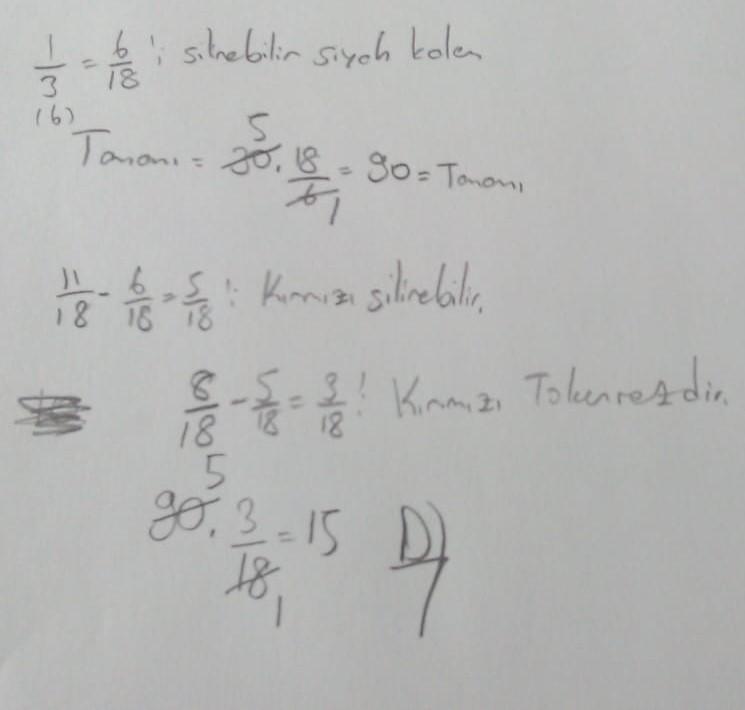 1/3 = 6/18 ; silnebilir siyah kalem
(6)
Tamamı = 30. 18/6 = 90 = Tamamı
5
1
11/18 - 6/18 = 5/18 : Kırmızı silinebilir.
8/18 - 5/18 = 3/18 ! Kırmızı
5
90. 3/18 = 15 D)
1